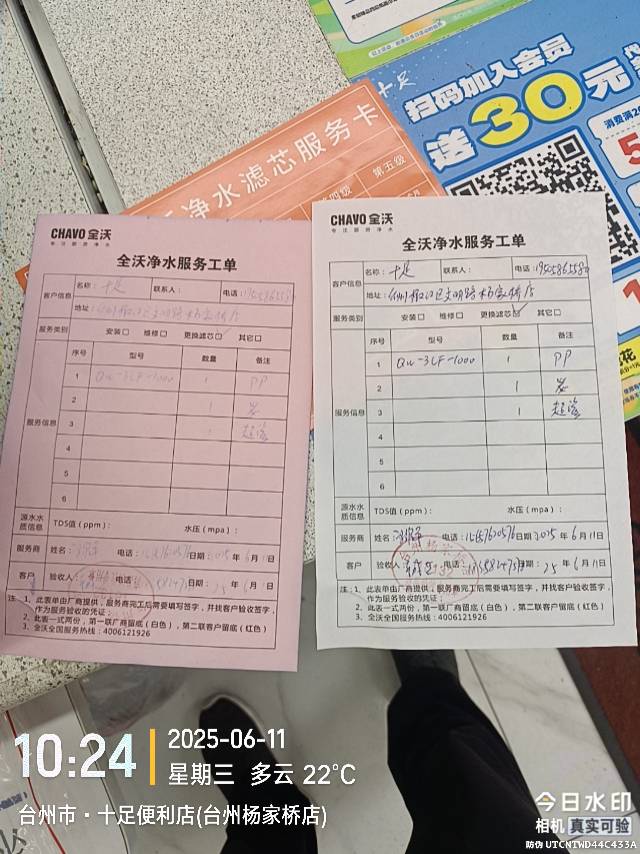 十足
扫码加入会员
送30元
消费满2
净水滤芯服务卡
第四级
第五级
CHAVO 全沃
专注厨房净水
全沃净水服务工单
客户信息
名称：十足
联系人：
电话：
地址：
服务类别
安装□ 维修□ 更换滤芯☑ 其它□
服务信息
序号 型号 数量 备注
1 QW-3CF-1000 1 PP
2 1 炭
3 1 超滤
4
5
6
源水水质信息
TDS值（ppm）： 水压（mpa）：
服务商
姓名： 电话： 日期： 年 6 月 11 日
客户
验收人： 电话： 日期： 25 年 6 月 11 日
注：1、此表单由厂商提供，服务商完工后需要填写签字，并找客户验收签字，
作为服务验收的凭证；
2、此表一式两份，第一联厂商留底（白色），第二联客户留底（红色）
3、全沃全国服务热线：4006121926
CHAVO 全沃
专注厨房净水
全沃净水服务工单
客户信息
名称：十足
联系人：
电话：
地址：台州椒江区文明路杨家桥店
服务类别
安装□ 维修□ 更换滤芯☑ 其它□
服务信息
序号 型号 数量 备注
1 QW-3CF-1000 1 PP
2 1 炭
3 1 超滤
4
5
6
源水水质信息
TDS值（ppm）： 水压（mpa）：
服务商
姓名： 电话：15157600576 日期：2025 年 6 月 11 日
客户
验收人： 电话： 日期： 25 年 6 月 11 日
注：1、此表单由厂商提供，服务商完工后需要填写签字，并找客户验收签字，
作为服务验收的凭证；
2、此表一式两份，第一联厂商留底（白色），第二联客户留底（红色）
3、全沃全国服务热线：4006121926
10:24
2025-06-11
星期三 多云 22℃
台州市·十足便利店(台州杨家桥店)
今日水印
相机 真实可验
防伪 UTCNTWD44C433A